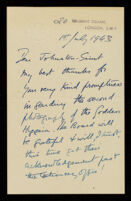 BELGRAVE SQUARE,
LONDON, S.W.1
15 July 1943
Dear Johnston-Saint
My best thanks for
your very kind promptness
in sending the second
photograph of the Goddess
Hygieia. The Board will
be grateful & will, I trust,
this time get their
acknowledgement past
the